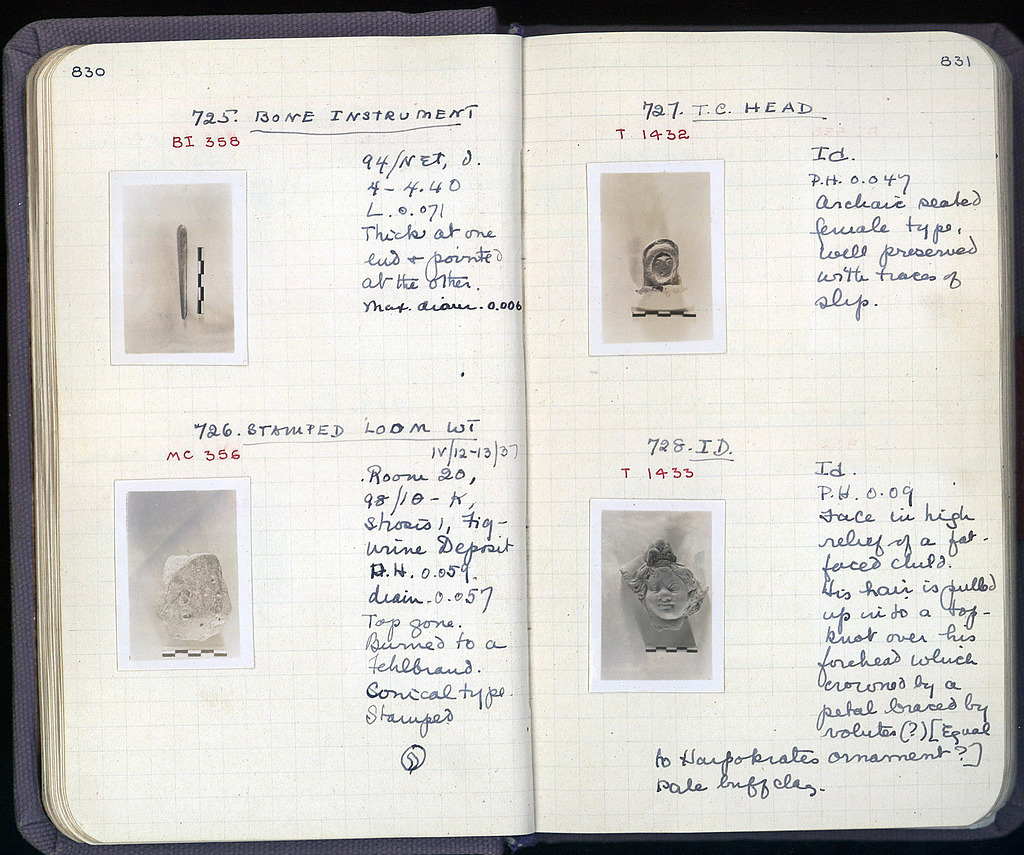 830
725. BONE INSTRUMENT
BI 358
94/NET, J.
4 - 4.40
L. 0.071
Thick at one
end + pointed
at the other.
Max. diam. 0.006
726. STAMPED LOOM WT
MC 356
IV/12-13/37
Room 20,
98/10 - K,
Strosis 1, Fig-
urine Deposit
P.H. 0.059.
diam. 0.057
Top gone.
Burned to a
Fehlbrand.
Conical type.
Stamped
831
727. T.C. HEAD
T 1432
Id.
P.H. 0.047
Archaic seated
female type,
well preserved
with traces of
slip.
728. ID.
T 1433
Id.
P.H. 0.09
Face in high
relief of a fat-
faced child.
His hair is pulled
up into a top-
knot over his
forehead which
crowned by a
petal braced by
volutes (?) [Equal
to Harpokrates ornament?]
Pale buff clay.